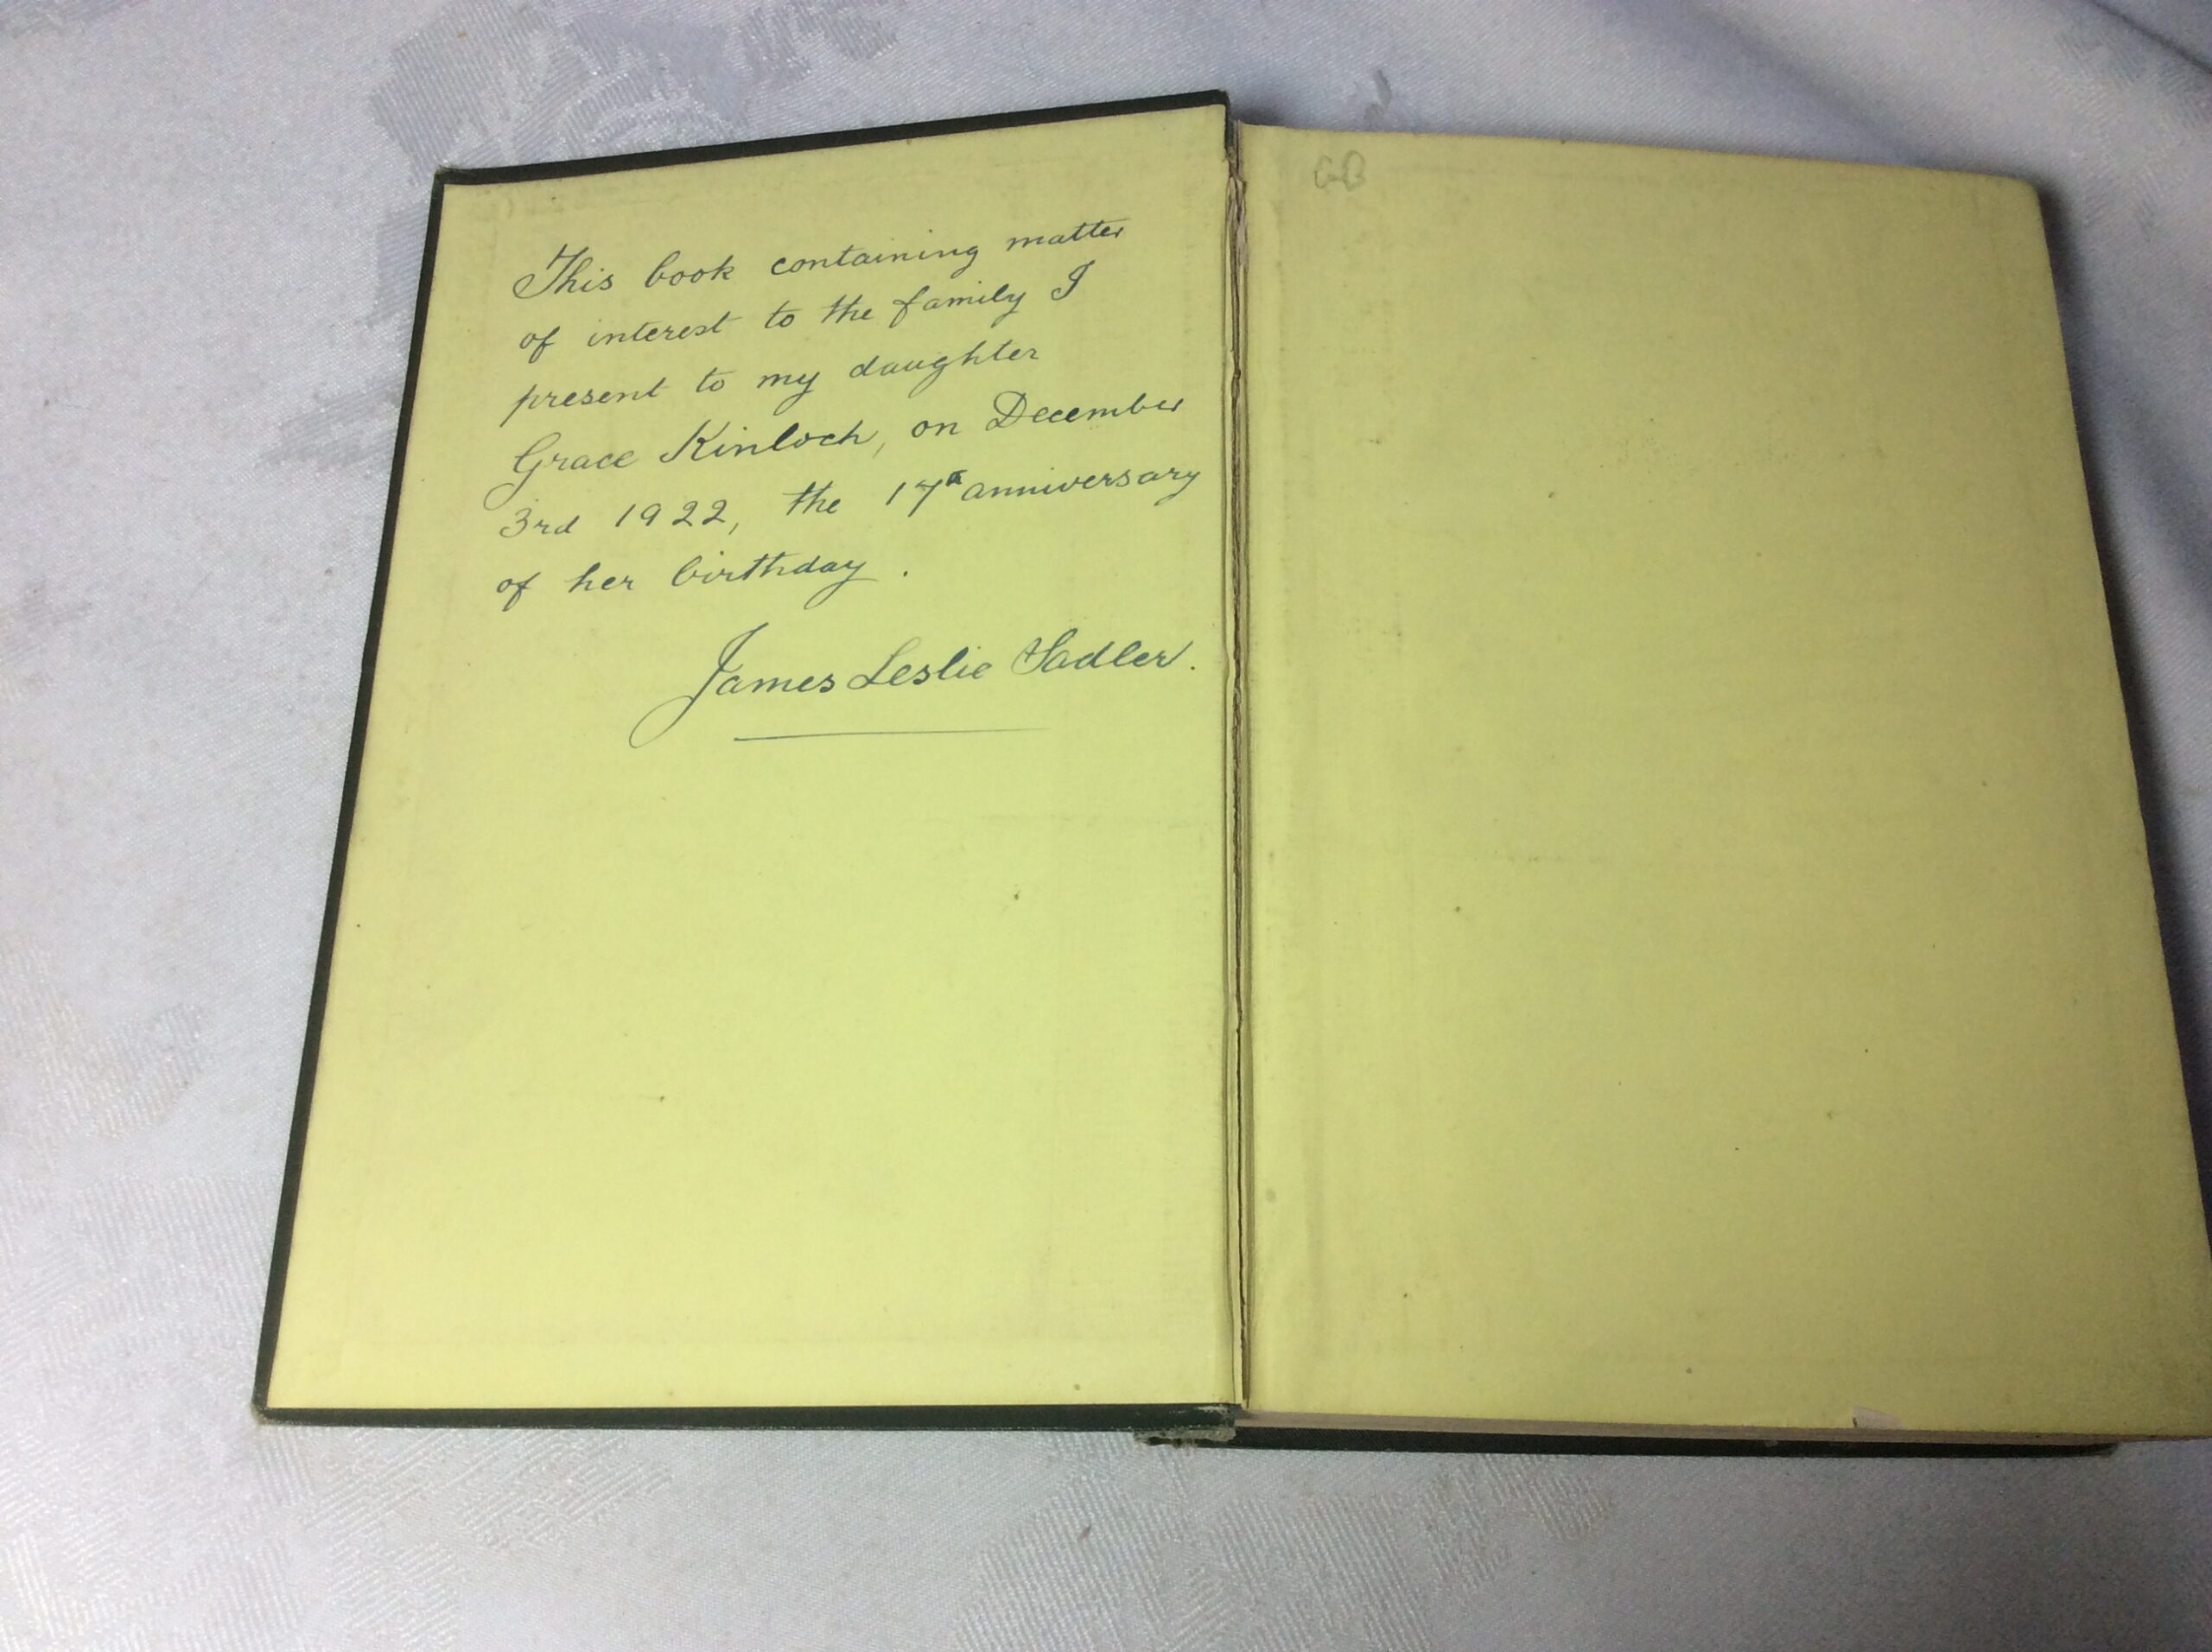 This book containing matter
of interest to the family I
present to my daughter
Grace Kinloch, on December
3rd 1922, the 17th anniversary
of her birthday.
James Leslie Sadler.